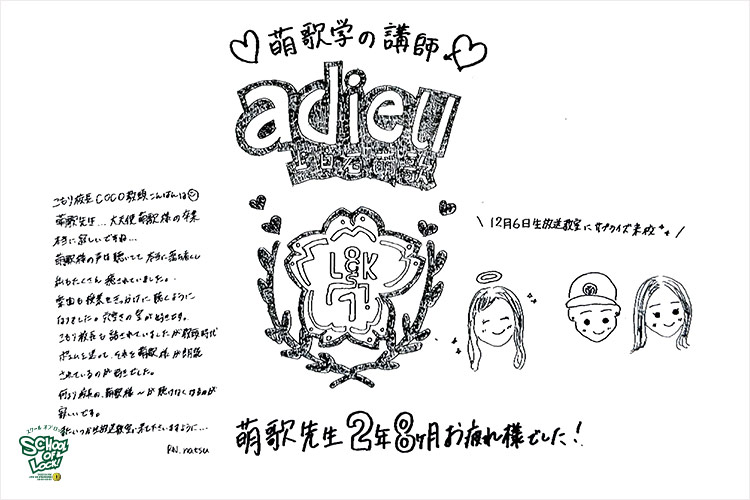 萌歌学の講師
adieu
上白石萌歌
LOCK
こもり校長COCO教頭こんばんは
萌歌先生...大天使萌歌様の卒業
本当に寂しいですね...
萌歌様の声は聴いてて本当に落ち着くし
私もたくさん癒されていました。
堂島も授業をきっかけに聴くように
なりました。
こもり校長も話されていましたが教頭時代
ポエムを送って、それを萌歌様が朗読
されているのが好きでした。
何より校長の、萌歌様〜が聴けなくなるのが
寂しいです。
またいつか生放送教室に来てくださいますように...
RN.natsu
\ 12月6日生放送教室にサプライズ来校 /
萌歌先生2年8ヶ月お疲れ様でした!
スクールオブロック
SCHOOL OF LOCK!